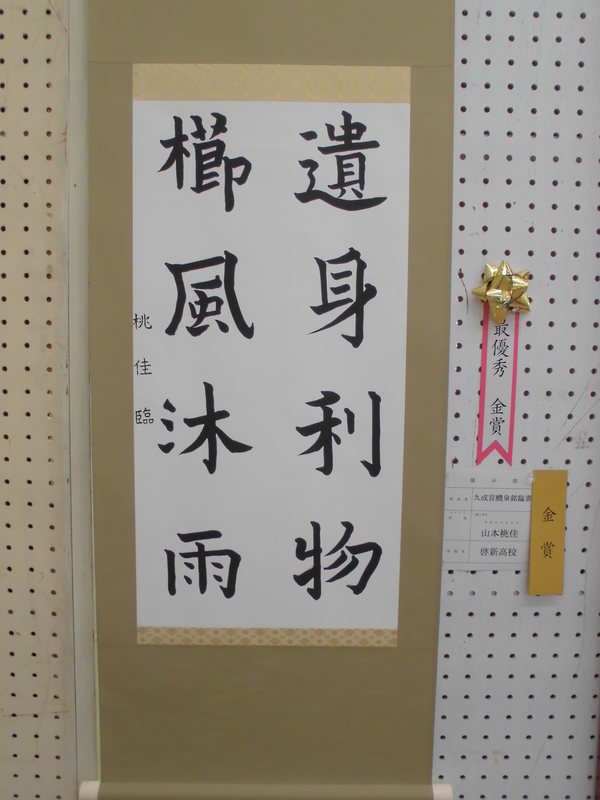 遺身利物
櫛風沐雨
桃佳臨
最優秀 金賞
九成宮醴泉銘臨書
山本桃佳
啓新高校
金賞